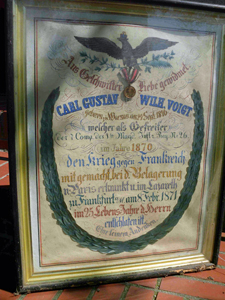 Aus Geschwister Liebe gewidmet
CARL GUSTAV WILH. VOIGT
geboren
welcher als Gefreiter
der 2 Comp. des Inft. No. 26
im Jahre 1870
den Krieg gegen Frankreich
mit gemacht bei d. Belagerung
v. Paris erkrankt u. im Lazareth
zu Frankfurt a. am 8 Febr. 1871
im 25 Lebens Jahre d. Herrn
entschlafen ist